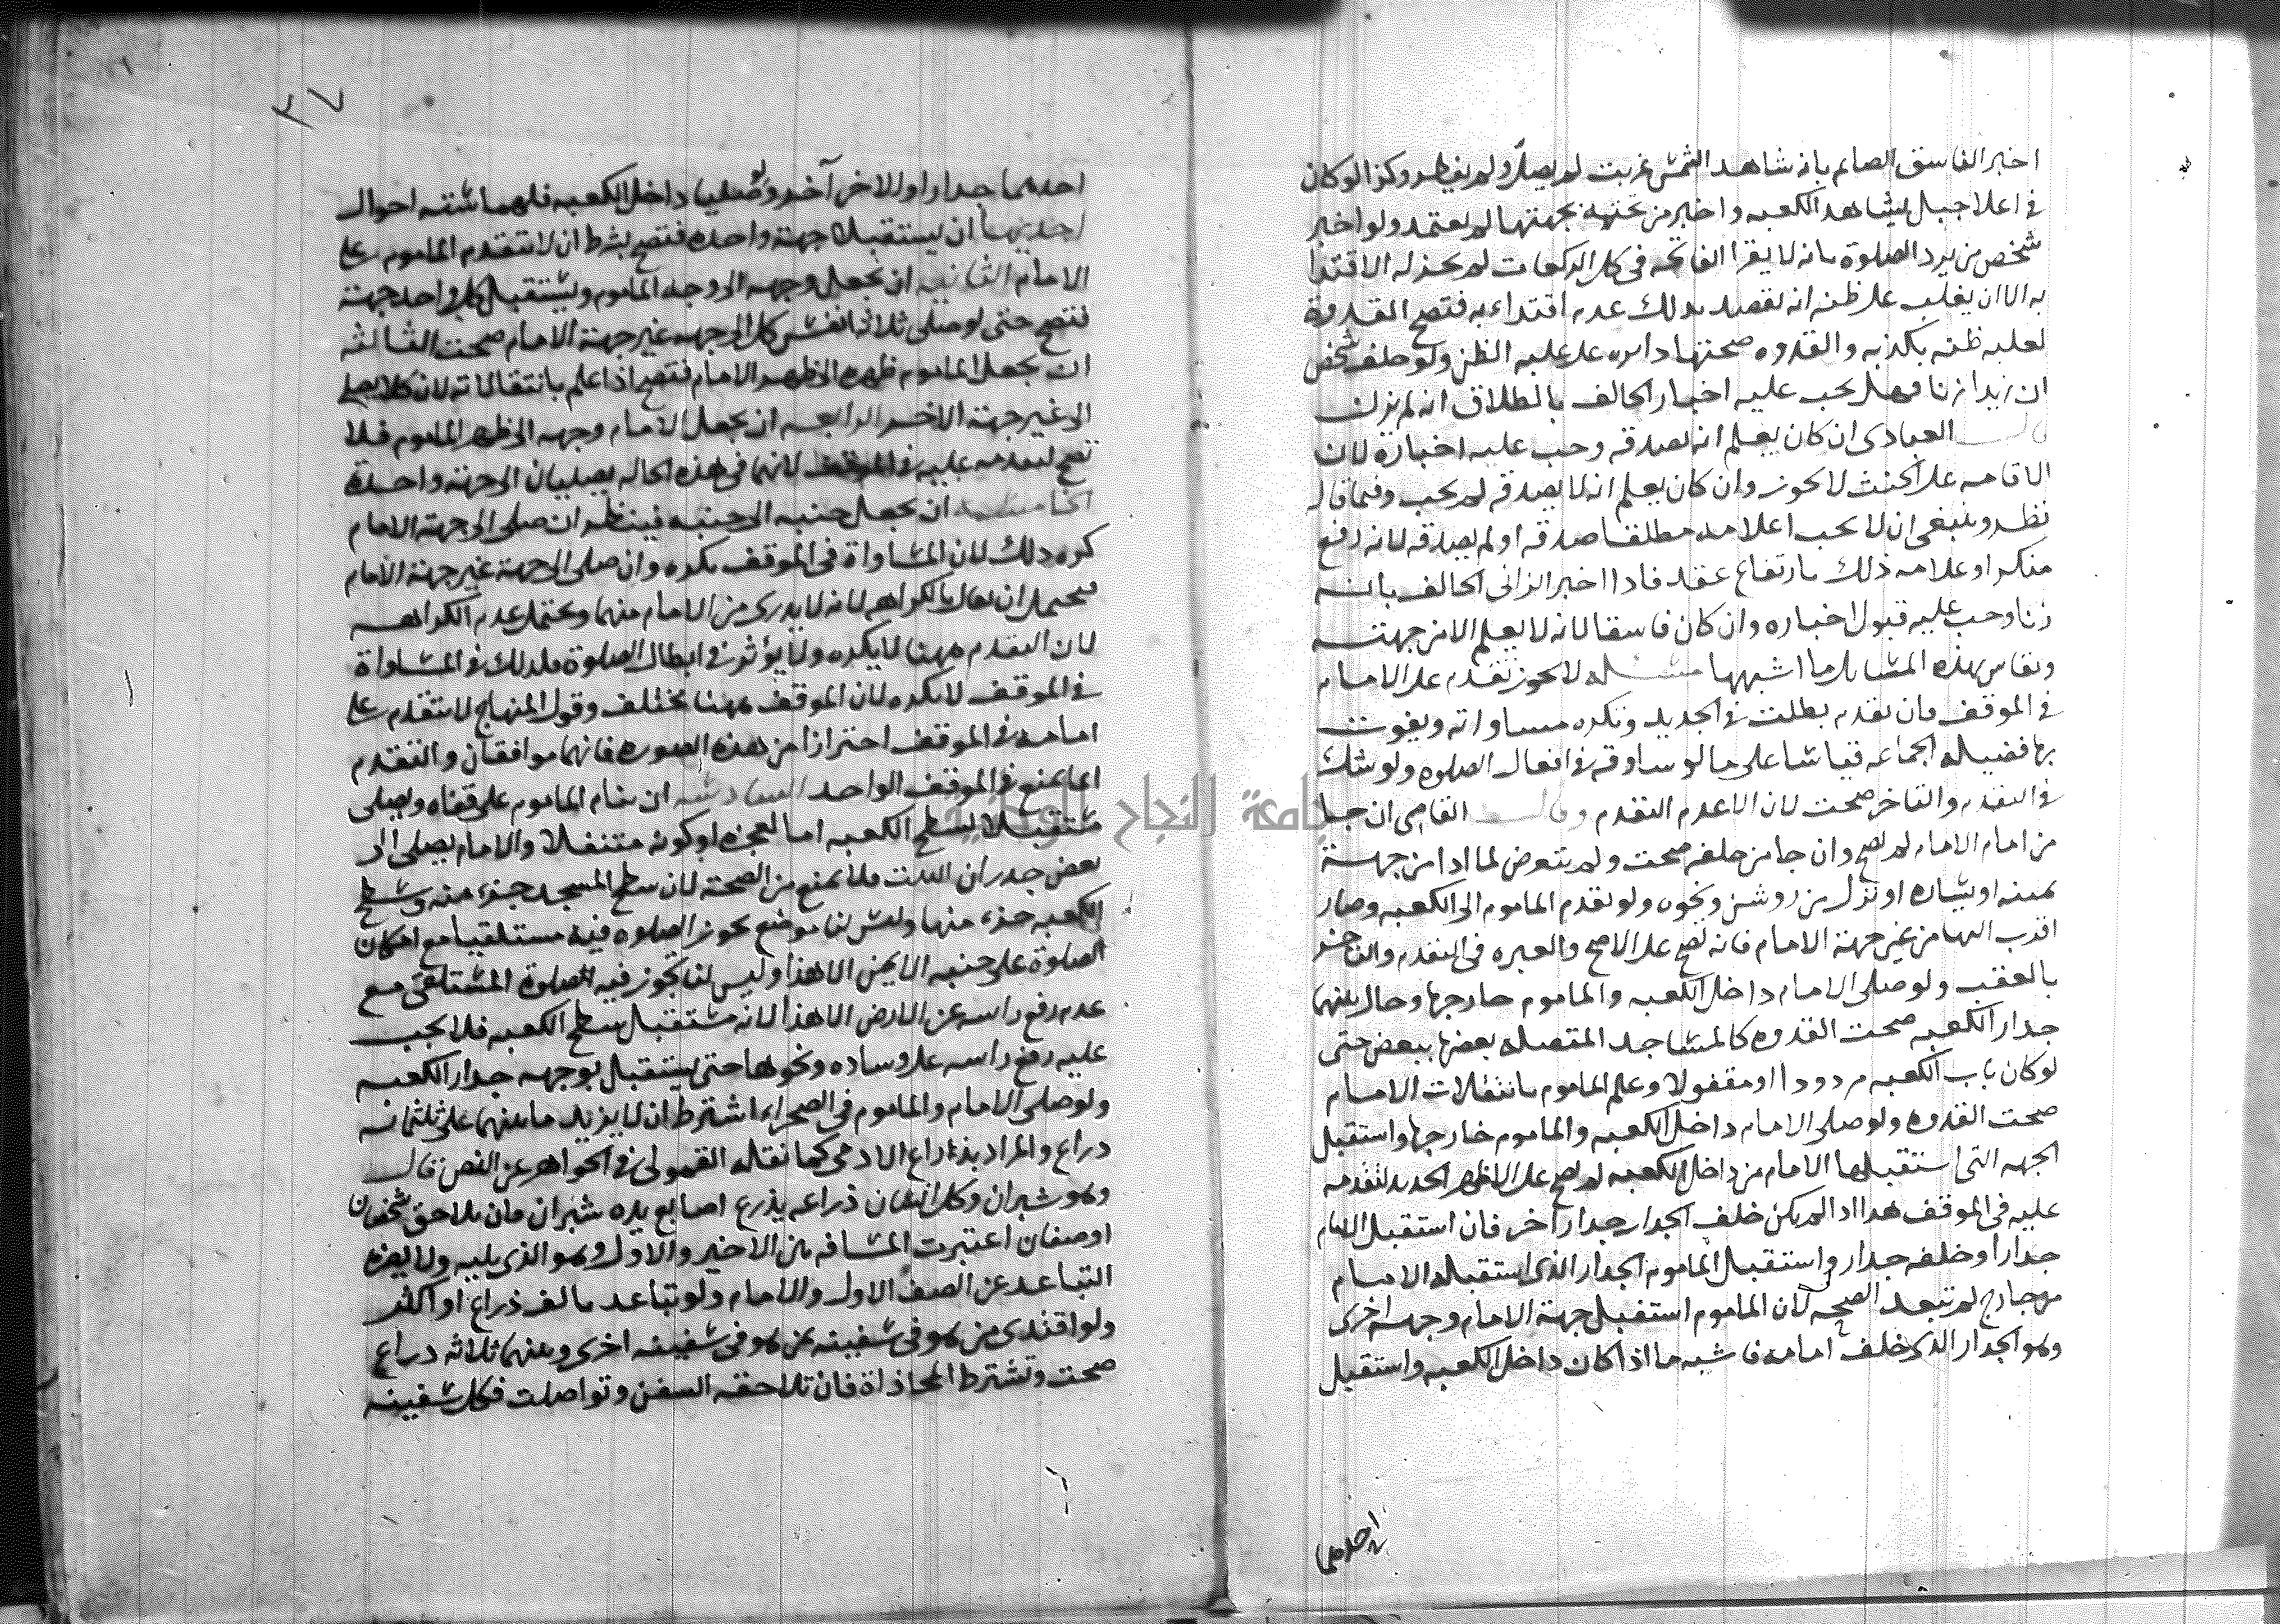 اخبر الفاسق الصائم بانه شاهد الشمس غربت لم يصل ولم يفطر وكذا لو كان
في اعلا جبل يشاهد الكعبه واخبر من تحته بجهتها لم يعتمد ولو اخبر
شخص من يرد الصلوة بانه لا يقرا الفاتحه في كل الركعات لم يجز له الاقتدا
به الا ان يغلب على ظنه انه يقصد بذلك عدم اقتداءه به فتصح القدوة
لغلبه ظنه بكذبه والقدوه صحتها دايره على غلبه الظن ولو حلف شخص
ان زيدا زنا فهل يجب عليه اخبار الحالف بالطلاق انه لم يزن
قال العبادى ان كان يعلم انه يصدقه وجب عليه اخباره لان
الاقامه على الحنث لا يجوز وان كان يعلم انه لا يصدقه لم يجب وفيما قال
نظر وينبغي ان لا يجب اعلامه مطلقا صدقه او لم يصدقه لانه رفع
منكر او علامه ذلك بارتفاع عقد فاذا اخبر الزانى الحالف بانه
زنا وجب عليه قبول اخباره وان كان فاسقا لانه لا يعلم الا من جهته
ويقاس بهذه المسايل ما اشبهها مسئله لا يجوز تقدم على الامام
في الموقف فان تقدم بطلت في الجديد وتكره مساواته ويفوت
بها فضيله الجماعه قياسا على ما لو ساوقه في افعال الصلوه ولو شك
في التقدم والتاخر صحت لان الاعدم التقدم وقال القاضي ان جا
من امام الامام لم تصح وان جا من خلفه صحت ولم يتعرض لما اذا من جهة
يمينه او يساره او نزل من روشن ونحوه ولو تقدم الماموم الى الكعبه وصار
اقرب اليها من غير جهة الامام فانه تصح على الاصح والعبره في التقدم والتاخر
بالعقب ولو صلى الامام داخل الكعبه والماموم خارجها وحال بينهما
جدار الكعبه صحت القدوه كالمساجد المتصله بعضها ببعض حتى
لو كان باب الكعبه مردودا او مقفولا وعلم الماموم بانتقالات الامام
صحت القدوه ولو صلى الامام داخل الكعبه والماموم خارجها واستقبل
الجهه التى استقبلها الامام من داخل الكعبه لم تصح على الاظهر الجديد لتقدمه
عليه في الموقف هذا اذا لم يكن خلف الجدار جدار اخر فان استقبل الامام
جدارا وخلفه جدار واستقبل الماموم الجدار الذى استقبله الامام
من خارج لم تبعد الصحه لان الماموم استقبل جهة الامام وجهة اخرى
وهو الجدار الذى خلف امامه فاشبه ما اذا كان داخل الكعبه واستقبل
احدهما
٣٧
احدهما جدارا والاخر آخر ولو صليا داخل الكعبه فلهما سته احوال
احديها ان يستقبلا جهة واحده فتصح بشرط ان لا يتقدم الماموم على
الامام الثانيه ان يجعل وجهه الى وجه الماموم ويستقبل كل واحد جهة
فتصح حتى لو صلى ثلاثه انفس كل الى جهه غير جهة الامام صحت الثالثه
ان يجعل الماموم ظهره الى ظهر الامام فتصح اذا علم بانتقالاته لان كلا يصلى
الى غير جهة الاخر الرابعه ان يجعل الامام وجهه الى ظهر الماموم فلا
تصح لتقدمه عليه في الموقف لانهما في هذه الحاله يصليان الى جهة واحدة
الخامسه ان يجعل جنبه الى جنبه فينظر ان صلى الى جهة الامام
كره ذلك لان المساواة في الموقف تكره وان صلى الى جهة غير جهة الامام
فيحتمل ان يقال بالكراهه لانه لا يدرى من الامام منهما ويحتمل عدم الكراهه
لان التقدم ههنا لا يكره ولا يؤثر في ابطال الصلوة فلذلك في المساواة
في الموقف لا يكره لان الموقف ههنا مختلف وقول المنهاج لا يتقدم على
امامه في الموقف احترازا من هذه الصوره فانهما موافقان والتقدم
انما يمنع في الموقف الواحد السادسه ان ينام الماموم على قفاه ويصلى
مستقبلا لسطح الكعبه اما لعجزه او كونه متنفلا والامام يصلى الى
بعض جدران البيت فلا يمنع من الصحة لان سطح المسجد جزء منه وسطح
الكعبه جزء منها وليس لنا موضع يجوز الصلوه فيه مستلقيا مع امكان
الصلوة على جنبه الايمن الا هذا وليس لنا يجوز فيه الصلوة المستلقى مع
عدم رفع راسه عن الارض الا هذا لانه مستقبل سطح الكعبه فلا يجب
عليه رفع راسه على وساده ونحوها حتى يستقبل بوجهه جدار الكعبه
ولو صلى الامام والماموم في الصحراء اشترط ان لا يزيد ما بينهما على ثلثمائه
ذراع والمراد بذراع الادمى كما نقله القمولى في الجواهر عن النص قال
وهو شبران وكل انسان ذراعه يذرع اصابع يده شبران فان تلاحق شخصان
او صفان اعتبرت المسافه بين الاخير والاول وهو الذى يليه ولا يضره
التباعد عن الصف الاول والامام ولو تباعد بالف ذراع او اكثر
ولو اقتدى من هو في سفينه بمن هو في سفينه اخرى وبينهما ثلاثه ذراع
صحت وتشترط المحاذاة فان تلاحقه السفن وتواصلت فكل سفينه
جامعة النجاح الوطنية